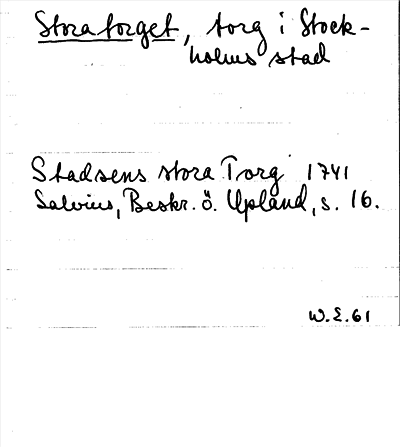 Stora torget, torg i Stock-
holms stad
Stadsens stora Torg 1741
Salvius, Beskr. ö. Upland, s. 16.
W.E.61